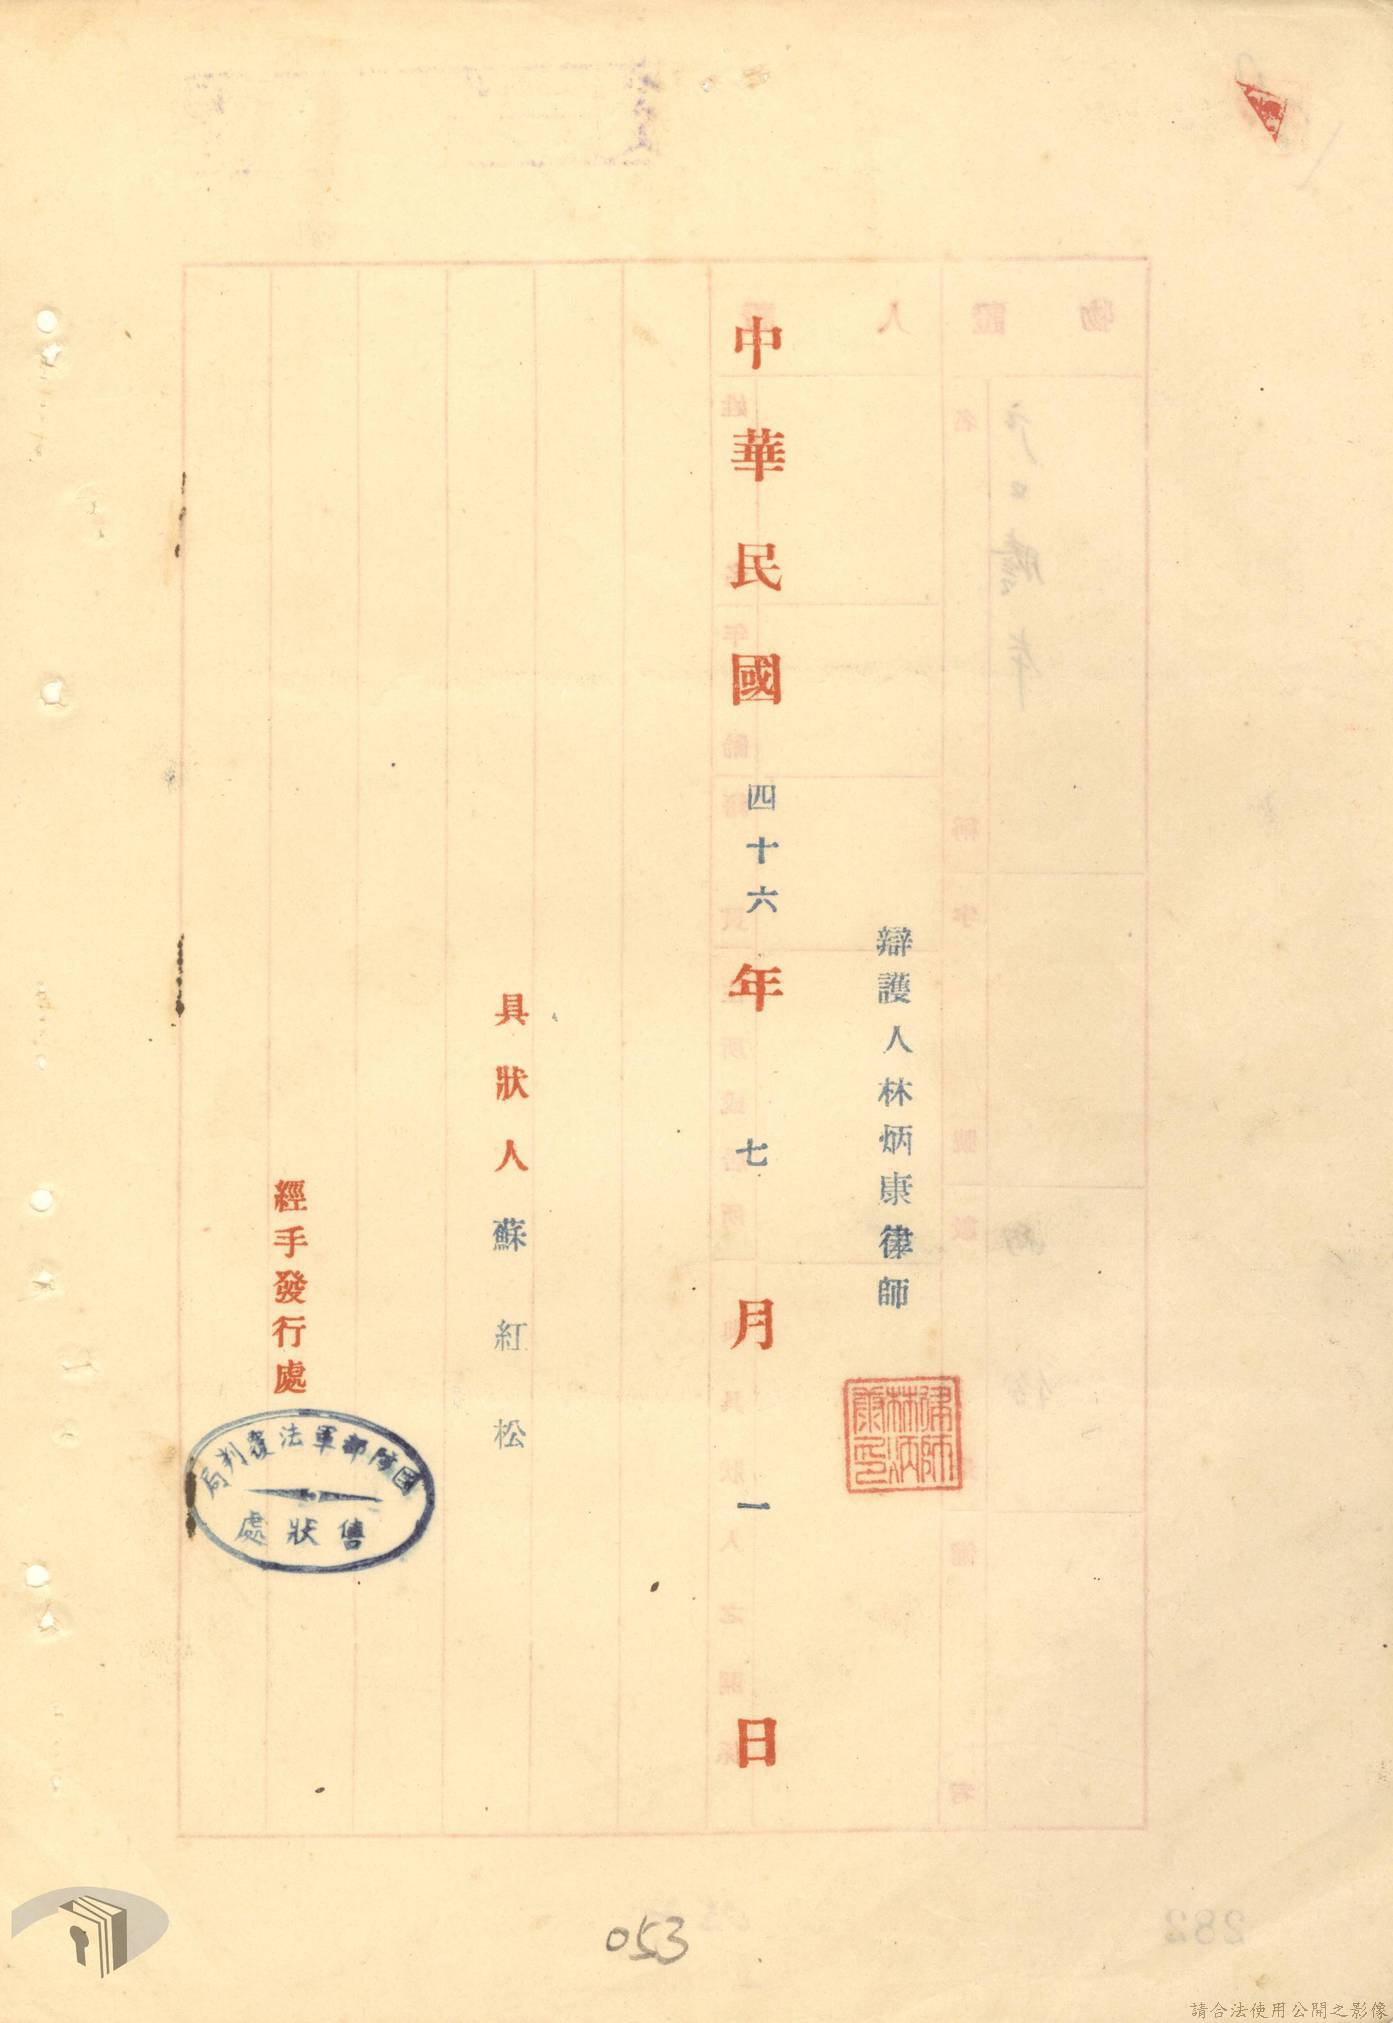 辯護人林炳康律師
律師林炳康印
中華民國四十六年七月一日
具狀人蘇紅松
經手發行處
國防部軍法覆判局
售狀處
053
282
請合法使用公開之影像